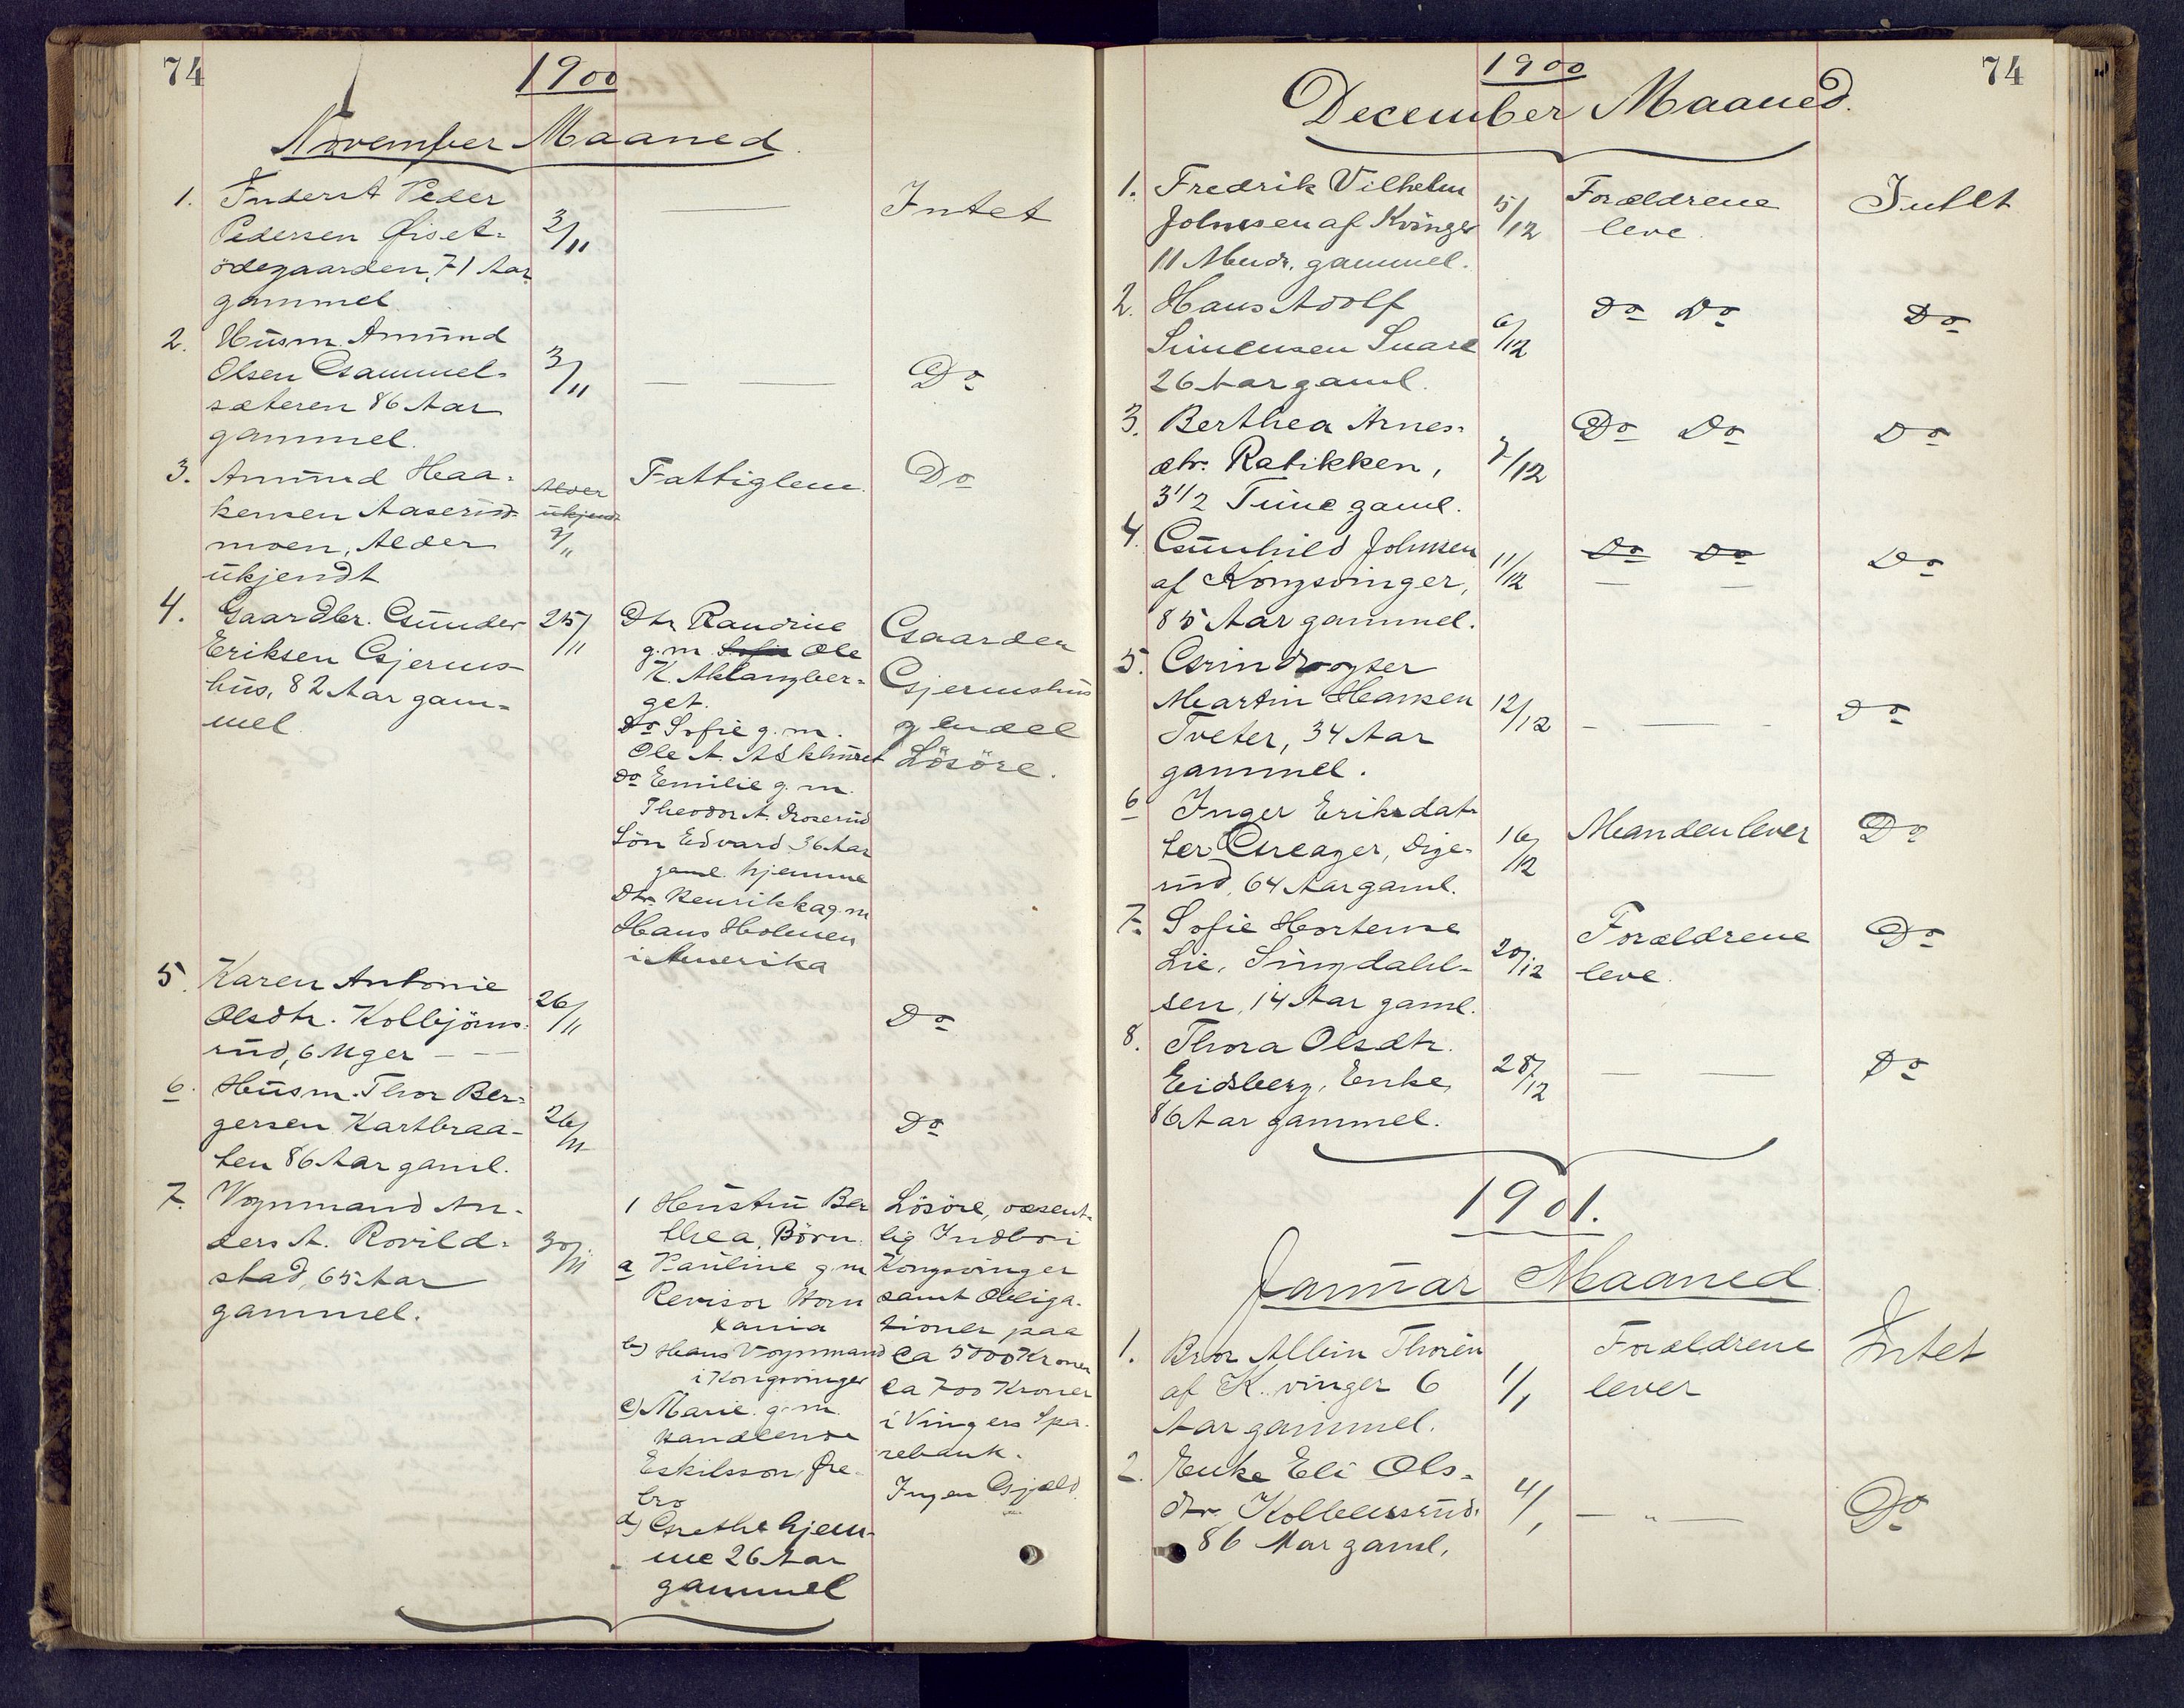 74
1900
November Maaned.
1. Inderst Peder
Pedersen Öiset-
ödegaarden, 71 Aar
gammel
3/11
Intet
2. Husm. Amund
Olsen Gammel-
sæteren 86 Aar
gammel.
3/11
Do
3. Amund Haa-
kensen Aaserud-
moen, Alder
ukjendt
Alder
ukjendt
9/11
Fattiglem.
Do
4. Gaardbr. Gunder
Eriksen Gjerms-
hus, 82 Aar gam-
mel
25/11
Dtr Randine
g.m. Sofie Ole
K. Aklangber-
get.
Do Sofie g.m.
Ole A. Askhuret
Do Emilie g.m.
Theodor A. Roserud
Sön Edvard 36 Aar
gaml. hjemme
Dtr. Henrikka g.m
Hans Holmen
i Amerika
Gaarden
Gjermshus
og endel
Lösöre.
5. Karen Antonie
Olsdtr. Kolbjörns-
rud, 6 Uger
26/11
Do
6. Husm. Thor Ber-
gersen Kartbraa-
ten 86 Aar gaml.
26/11
Do
7. Vognmand An-
ders A. Rovild-
stad, 65 Aar
gammel.
30/11
1 Hustru Ber
thea, Börn.
a Pauline g.m
Revisor Horn
Xania
b) Hans Vognmand
i Kongsvinger
c) Marie g.m.
Handlende
Eskilsson Öre-
bro
d) Grethe hjem-
me 26 Aar
gammel
Lösöre, væsent-
lig Indbo i
Kongsvinger
samt Obliga-
tioner paa
ca 5000 Kroner
ca 700 Kroner
i Vingers Spa-
rebank.
Ingen Gjæld
74
1900
December Maaned.
1. Fredrik Vilhelm
Johnsen af Kvinger
11 Mndr. gammel.
5/12
Forældrene
leve.
Intet
2. Hans Adolf
Simensen Snare
26 Aar gaml.
6/12
Do Do
Do
3. Berthea Arnes-
dtr. Ratikken,
3 1/2 Time gaml.
7/12
Do Do
Do
4. Gunhild Johnsen
af Kongsvinger,
85 Aar gammel.
11/12
Do Do
Do
5. Grindvogter
Martin Hansen
Tveter, 34 Aar
gammel.
12/12
Do
6 Inger Eriksdat-
ter Greager, Dige-
rud, 64 Aar gaml.
16/12
Manden lever
Do
7. Sofie Hortense
Lie, Singdahl-
sen, 14 Aar gaml.
20/12
Forældrene
leve.
Do
8. Thora Olsdtr.
Eidsberg, Enke,
86 Aar gammel.
28/12
Do
1901.
Januar Maaned
1. Bror Albin Thorén
af K.vinger 6
Aar gammel.
1/1
Forældrene
lever
Intet
2. Enke Eli Ols-
dtr. Kolbensrud.
86 Aar gaml,
4/1
— „ —
Do